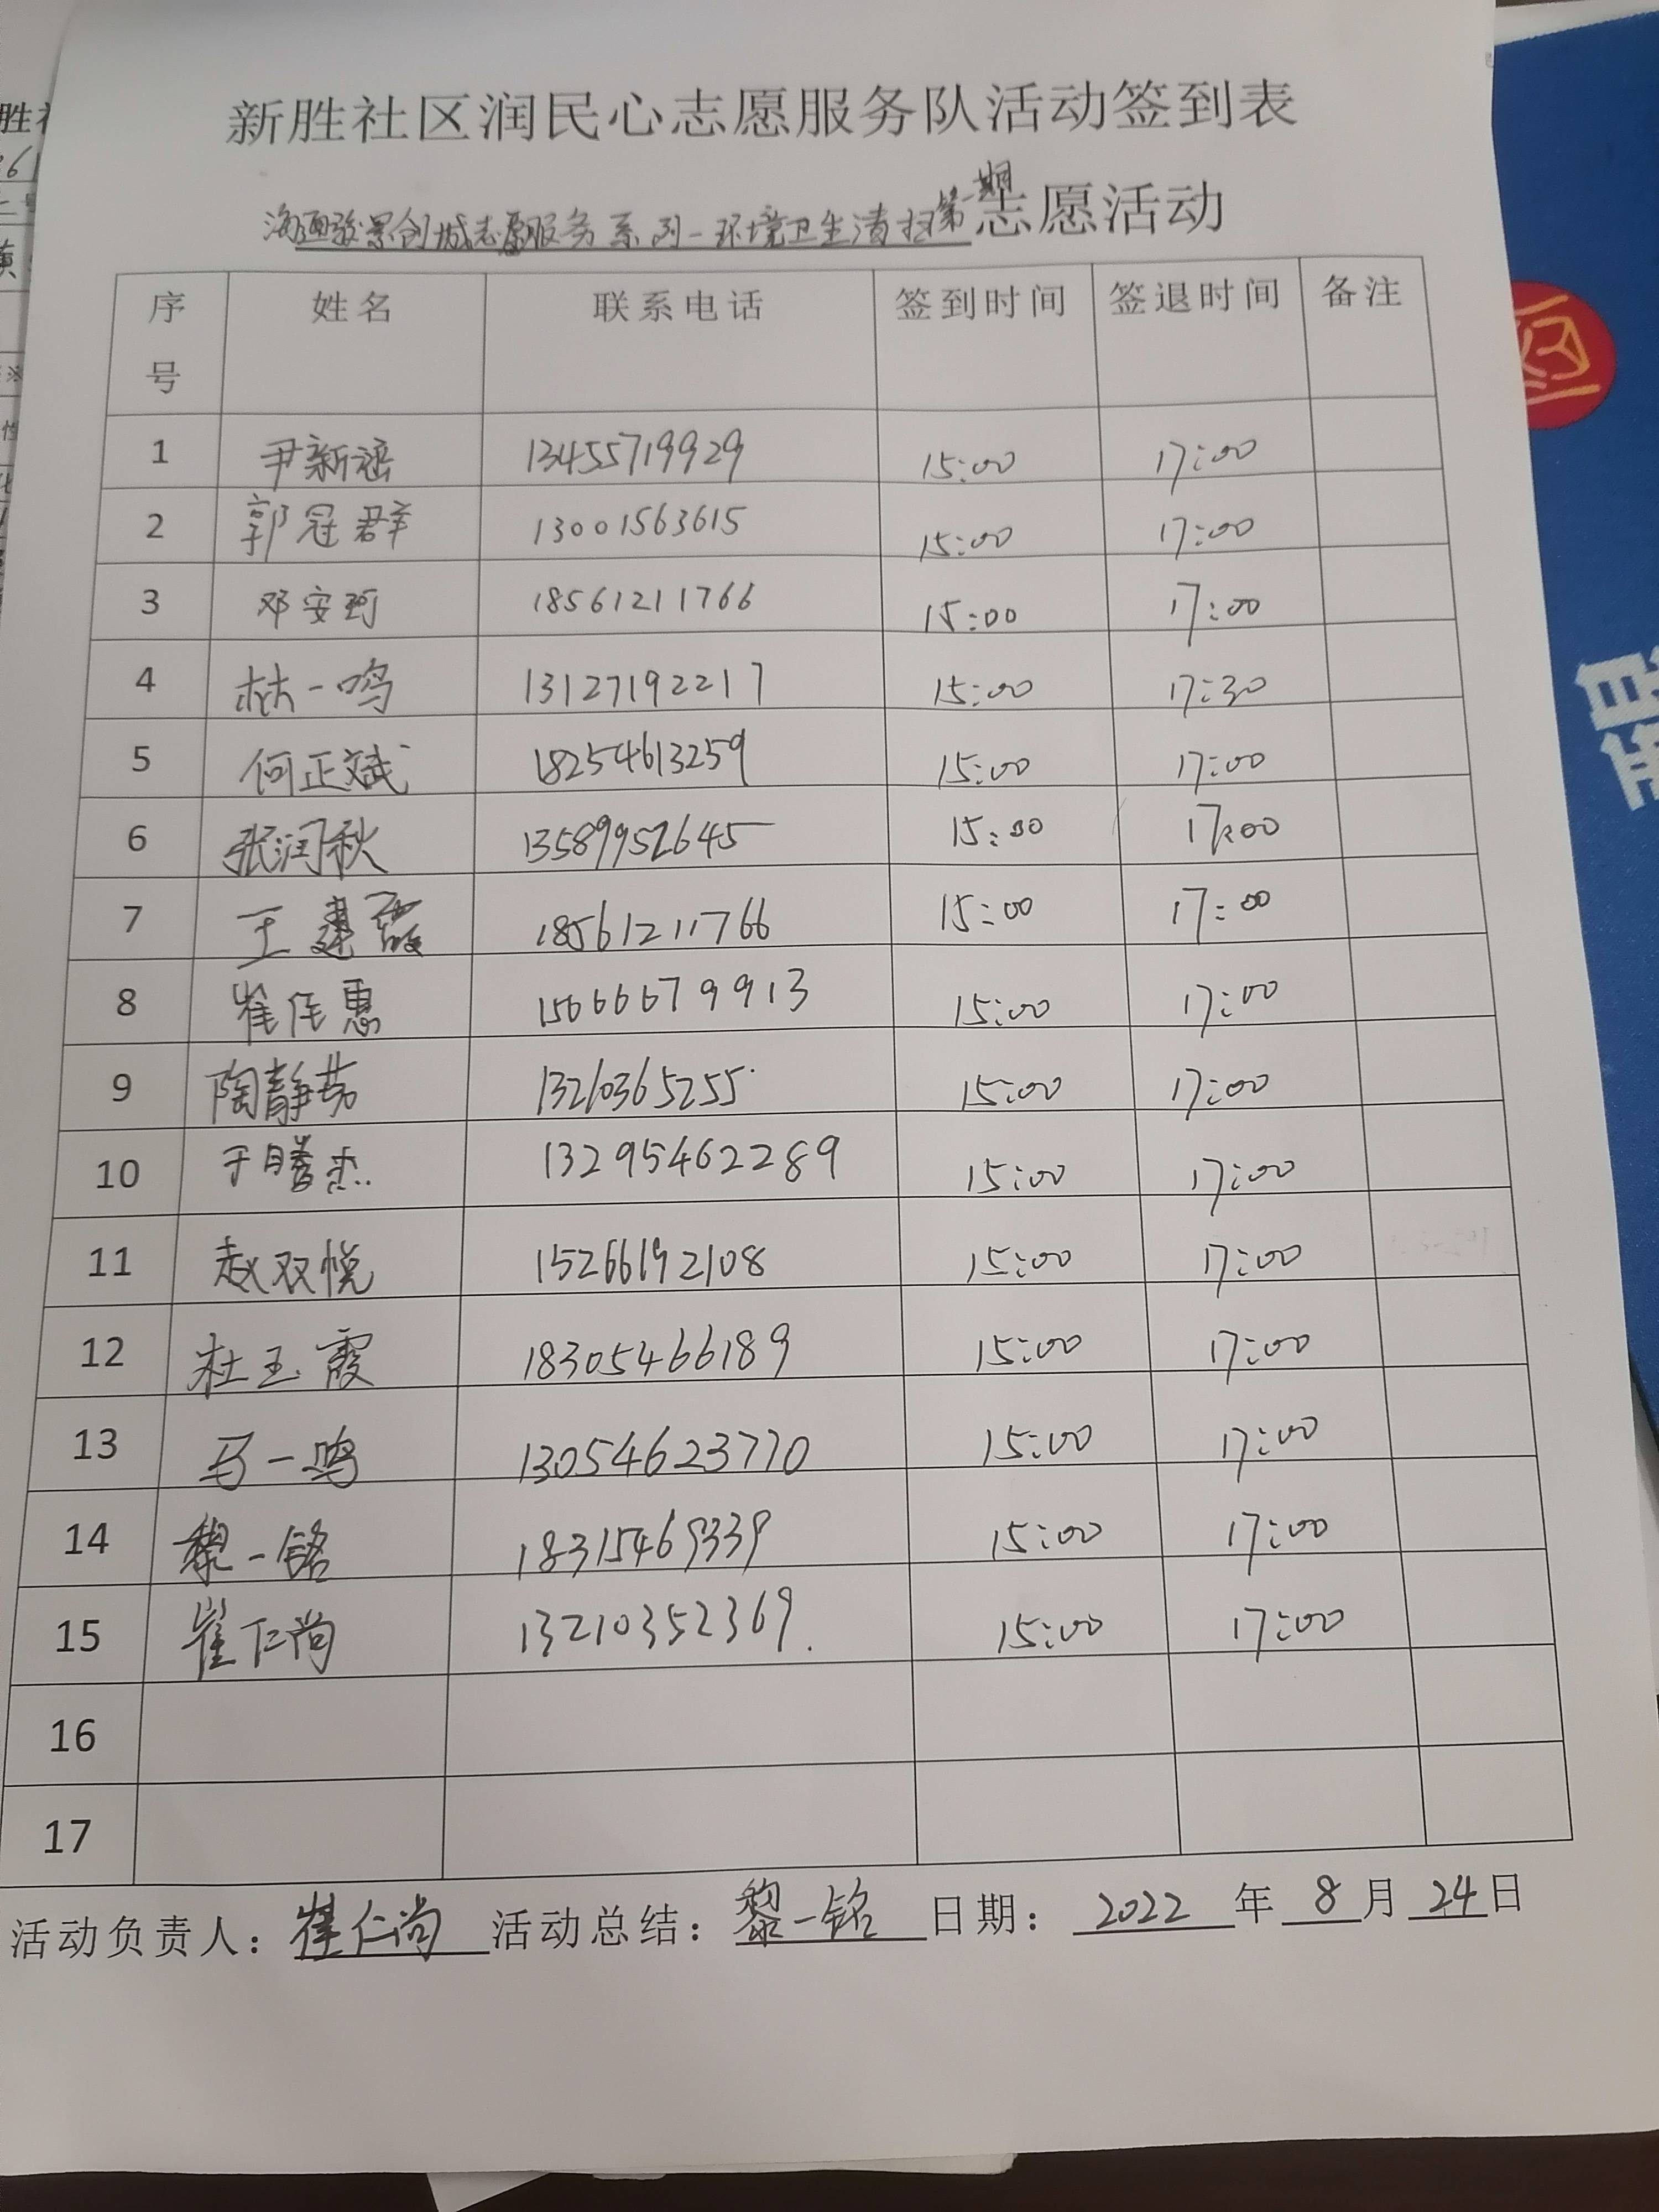 新胜社区润民心志愿服务队活动签到表
海通骏景创城志愿服务系列-环境卫生清扫第一期志愿活动
序号 姓名 联系电话 签到时间 签退时间 备注
1 尹新 13455719929 15:00 17:00
2 郭冠群 13001563615 15:00 17:00
3 邓安珂 18561211766 15:00 17:00
4 林一鸣 13127192217 15:00 17:30
5 何正斌 18254613259 15:00 17:00
6 张润秋 13589952645 15:00 17:00
7 王建霞 18561211766 15:00 17:00
8 崔佳惠 15666679913 15:00 17:00
9 陶静茹 13210365255 15:00 17:00
10 于腾杰 13295462289 15:00 17:00
11 赵双悦 15266192108 15:00 17:00
12 杜玉霞 18305466189 15:00 17:00
13 马一鸣 13054623770 15:00 17:00
14 黎一铭 18315469339 15:00 17:00
15 崔仁尚 13210352369. 15:00 17:00
16
17
活动负责人：崔仁尚 活动总结：黎一铭 日期：2022年8月24日